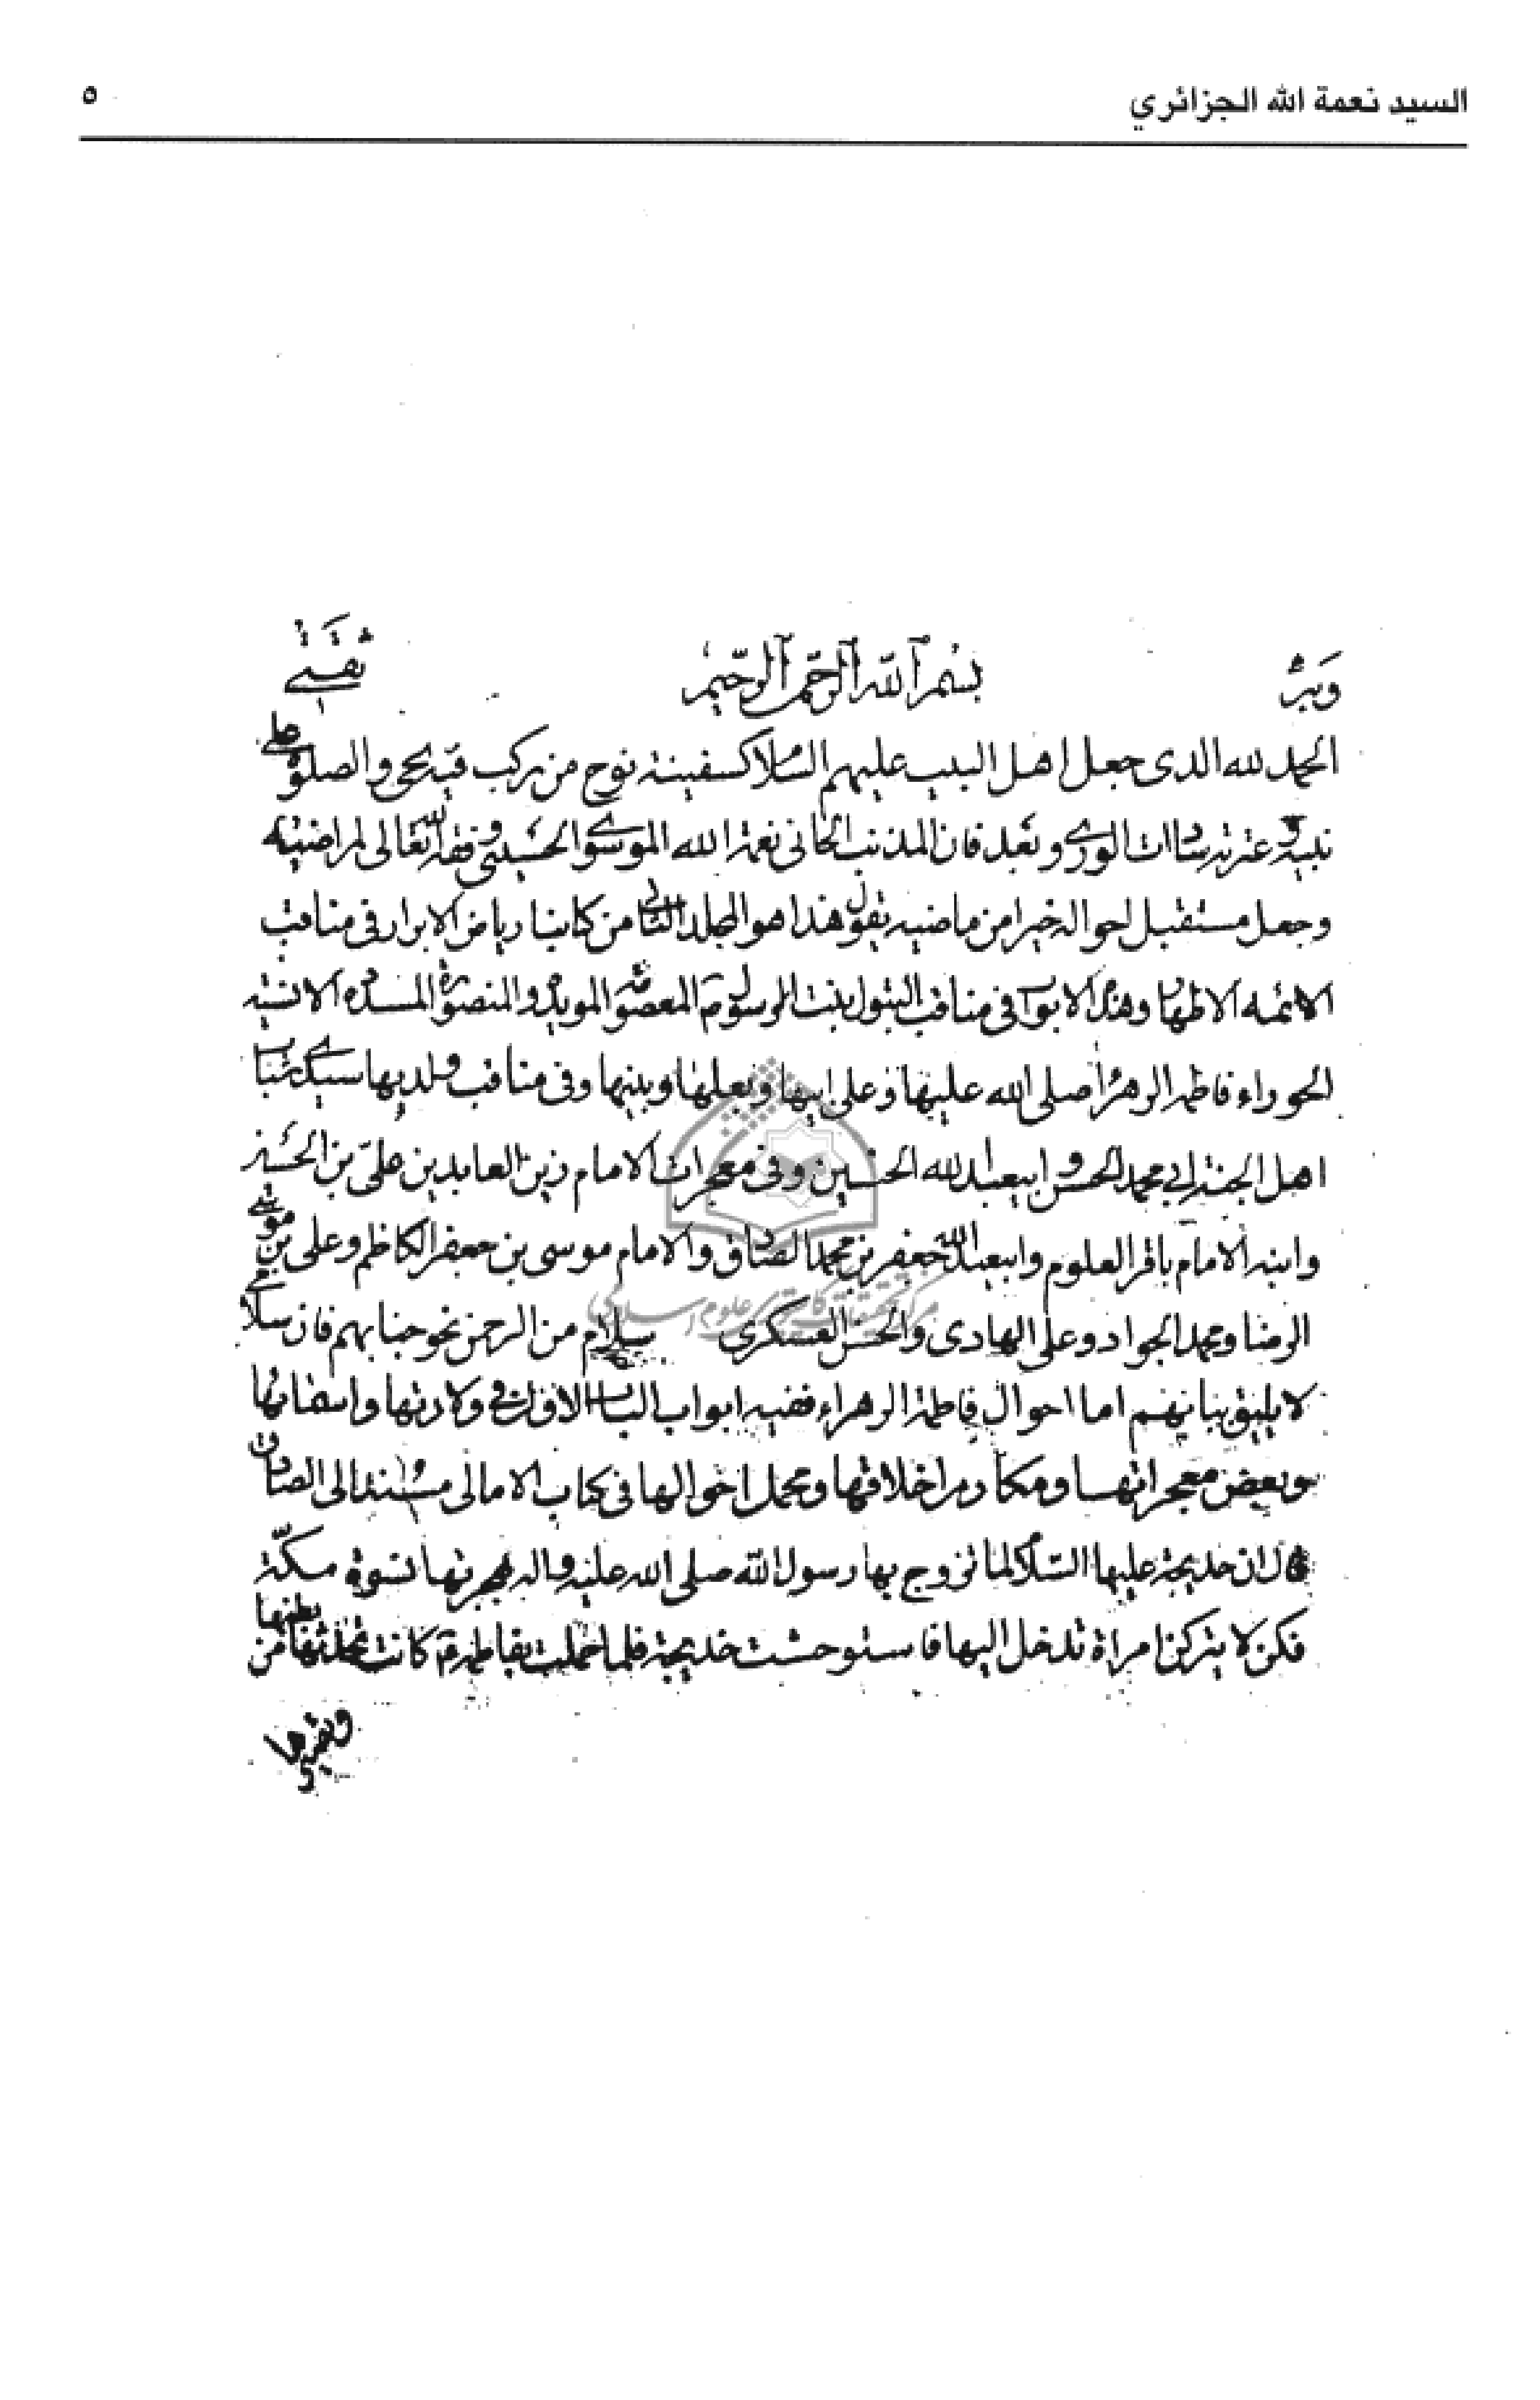 السيد نعمة الله الجزائري ٥
وبه بسم الله الرحمن الرحيم ثقتي
الحمد لله الذي جعل اهل البيت عليهم السلام كسفينة نوح من ركب فيه نجى والصلوة على
نبيه و عترته سادات الورى وبعد فان المذنب الجاني نعمة الله الموسوي الحسيني وفقه الله تعالى لمراضيه
وجعل مستقبل احواله خيرا من ماضيه يقول هذا هو المجلد الثاني من كتابنا رياض الابرار في مناقب
الائمه الاطهار وهذه الابواب في مناقب البتول بنت الرسول المعصومة المويدة والمنصورة المسدده الانسيه
الحوراء فاطمة الزهراء صلى الله عليها وعلى ابيها وبعلها وبنيها وفي مناقب ولديها سيدي شباب
اهل الجنة ابي محمد الحسن و ابيعبد الله الحسين وفي معجزات الامام زين العابدين علي بن الحسين
وابنه الامام باقر العلوم وابيعبد الله جعفر بن محمد الصادق والامام موسى بن جعفر الكاظم وعلى بن موسى
الرضا ومحمد الجواد وعلى الهادى والحسن العسكرى سلام من الرحمن نحو جنابهم فان سلامي
لا يليق ببابهم اما احوال فاطمة الزهراء ففيه ابواب الباب الاول في ولادتها واسمائها
وبعض معجزاتها ومكارم اخلاقها ومجمل احوالها في كتاب الامالى مسندا الى الصادق
قال ان خديجة عليها السلام لما تزوج بها رسول الله صلى الله عليه واله هجرتها نسوة مكّة
فكن لا يتركن امراة تدخل اليها فاستوحشت خديجة فلما حملت بفاطمة كانت تحدثها من بطنها
وتصبرها